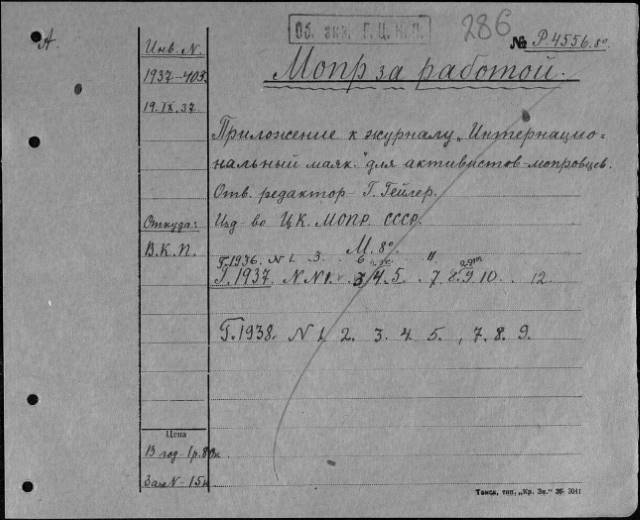 А.
Об. экз. Г.Ц.К.П.
286
№ Р.4556.8°
Инв. N.
1937-405.
19.IX.37
Мопр за работой.
Приложение к журналу „Интернацио-
нальный маяк." для активистов-мопровцев.
Отв. редактор Г. Гейлер.
Откуда:
Изд-во Ц.К. МОПР. СССР.
В.К.П.
М. 8°
Г.1936. N 1. 3. 6
Г.1937. N N 1. 3 4. 5. 7. 8. 9 10. 12.
Г.1938. N 1. 2. 3. 4. 5. , 7. 8. 9.
Цена
В год 1р. 80к
За 1 N - 15к
Томск, тип. „Кр. Зн." 36 3041